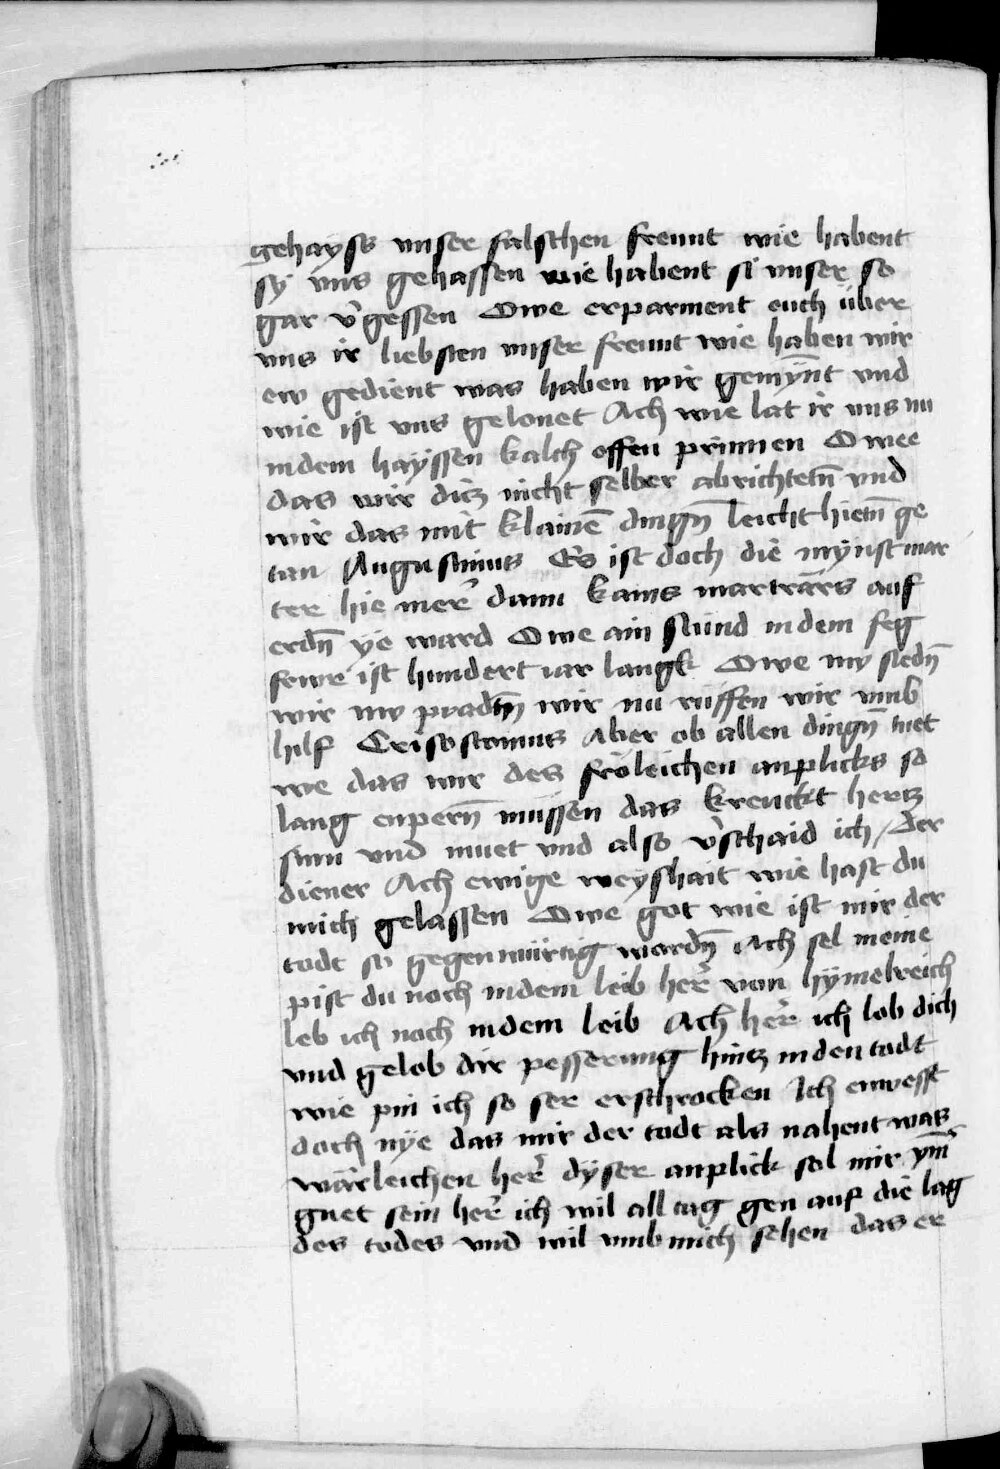 gehayss vnser falschen freunt wie habent
sy vns gehassen wie habent si vnser so
gar v̉gessen Owe erparment euch über
vns ir liebsten vnser freunt wie haben wir
ew gedient was haben wir gemӯnt vnd
wie ist vns gelonet Ach wie lat ir vns nu
in dem hayssen kalch offen prinnen Owee
das wir dicz nicht selber abrichtetn̄ vnd
wir das mit klainē dingn̄ leicht hietn̄ ge
tan Augustinus Es ist doch die mynst mar
ter hie mer̉ dann kains marträrs auf
erdn̄ ye ward Owe ain stund in dem feg
fewr ist hundert iar langk Owe nw siedn̄
wir nw pradtn̄ wir nu rüffen wir vmb
hilf Crisostomus Aber ob allen dingn̄ tuet
we das wir des fröleichen anplicks so
lang enpern̄ müssen das krenckt hercz
sinn vnd muet vnd also v̉schaid ich / Der
diener Ach ewige weyshait wie hast du
mich gelassen Owe got wie ist mir der
todt so gegenwürtig wordn̄ Ach sel meine
pist du noch in dem leib her̉ von hymelreich
leb ich noch in dem leib Ach her̉ ich lob dich
vnd gelob dir pesserung hincz in den todt
wie pin ich so ser erschrocken Ich enwesst
doch nye das mir der todt als nahent was
wärleichen her̉ dyser anplick sol mir ym̉
guet sein her̉ ich wil all tag gen auf die lag
des todes vnd wil vmb mich sehen das er